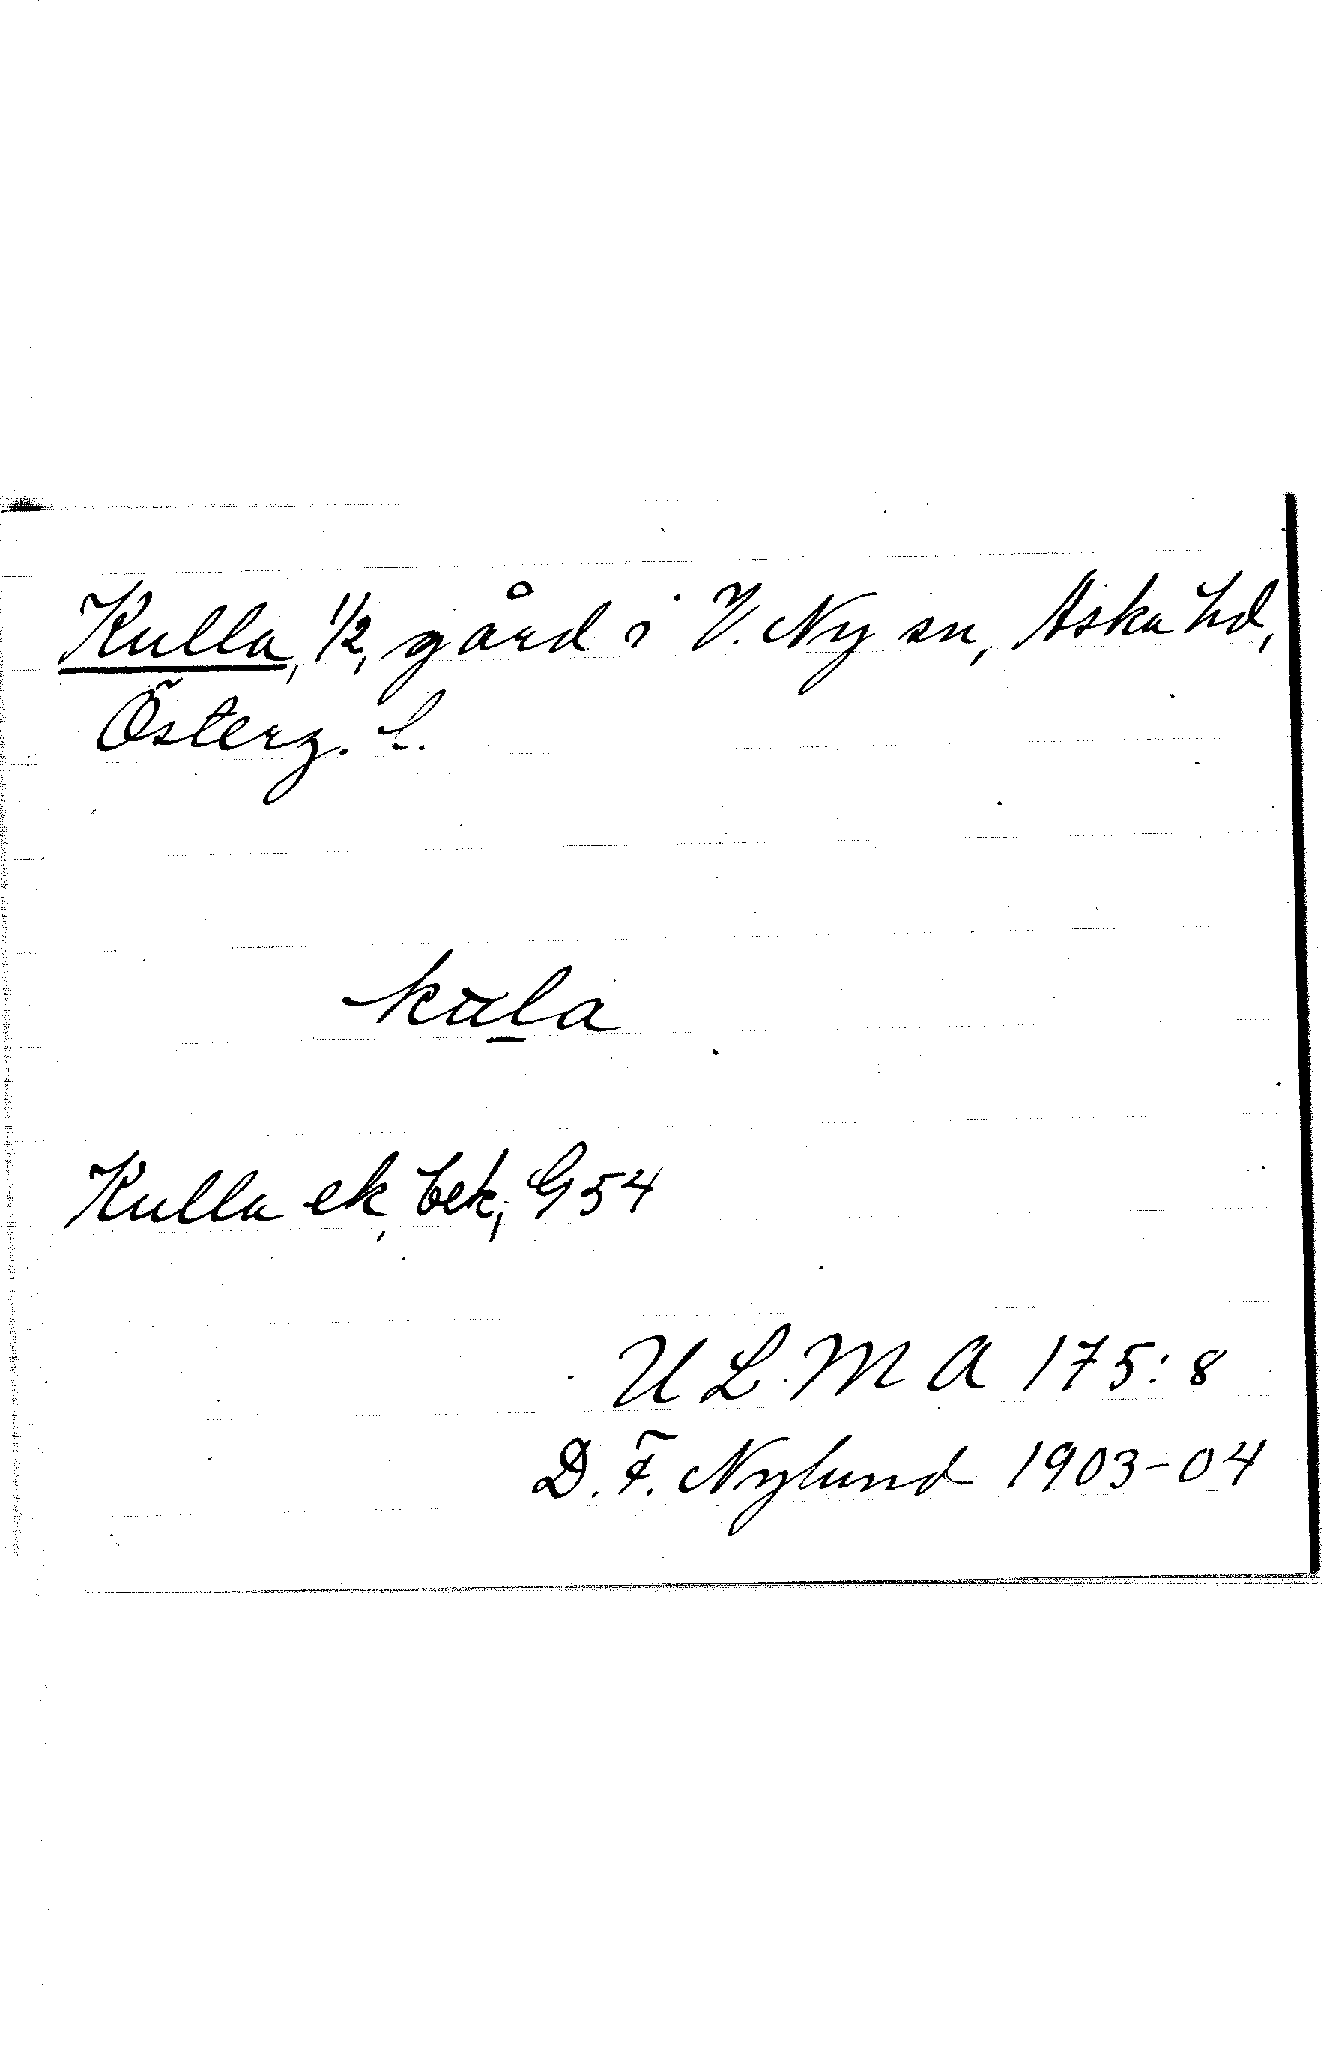 Kulla, 1/2, gård i V. Ny sn, Aska hd,
Österg. l.
kūl̲a
Kulla ek, bek, G54
U L M A 175:8
D. F. Nylund 1903-04